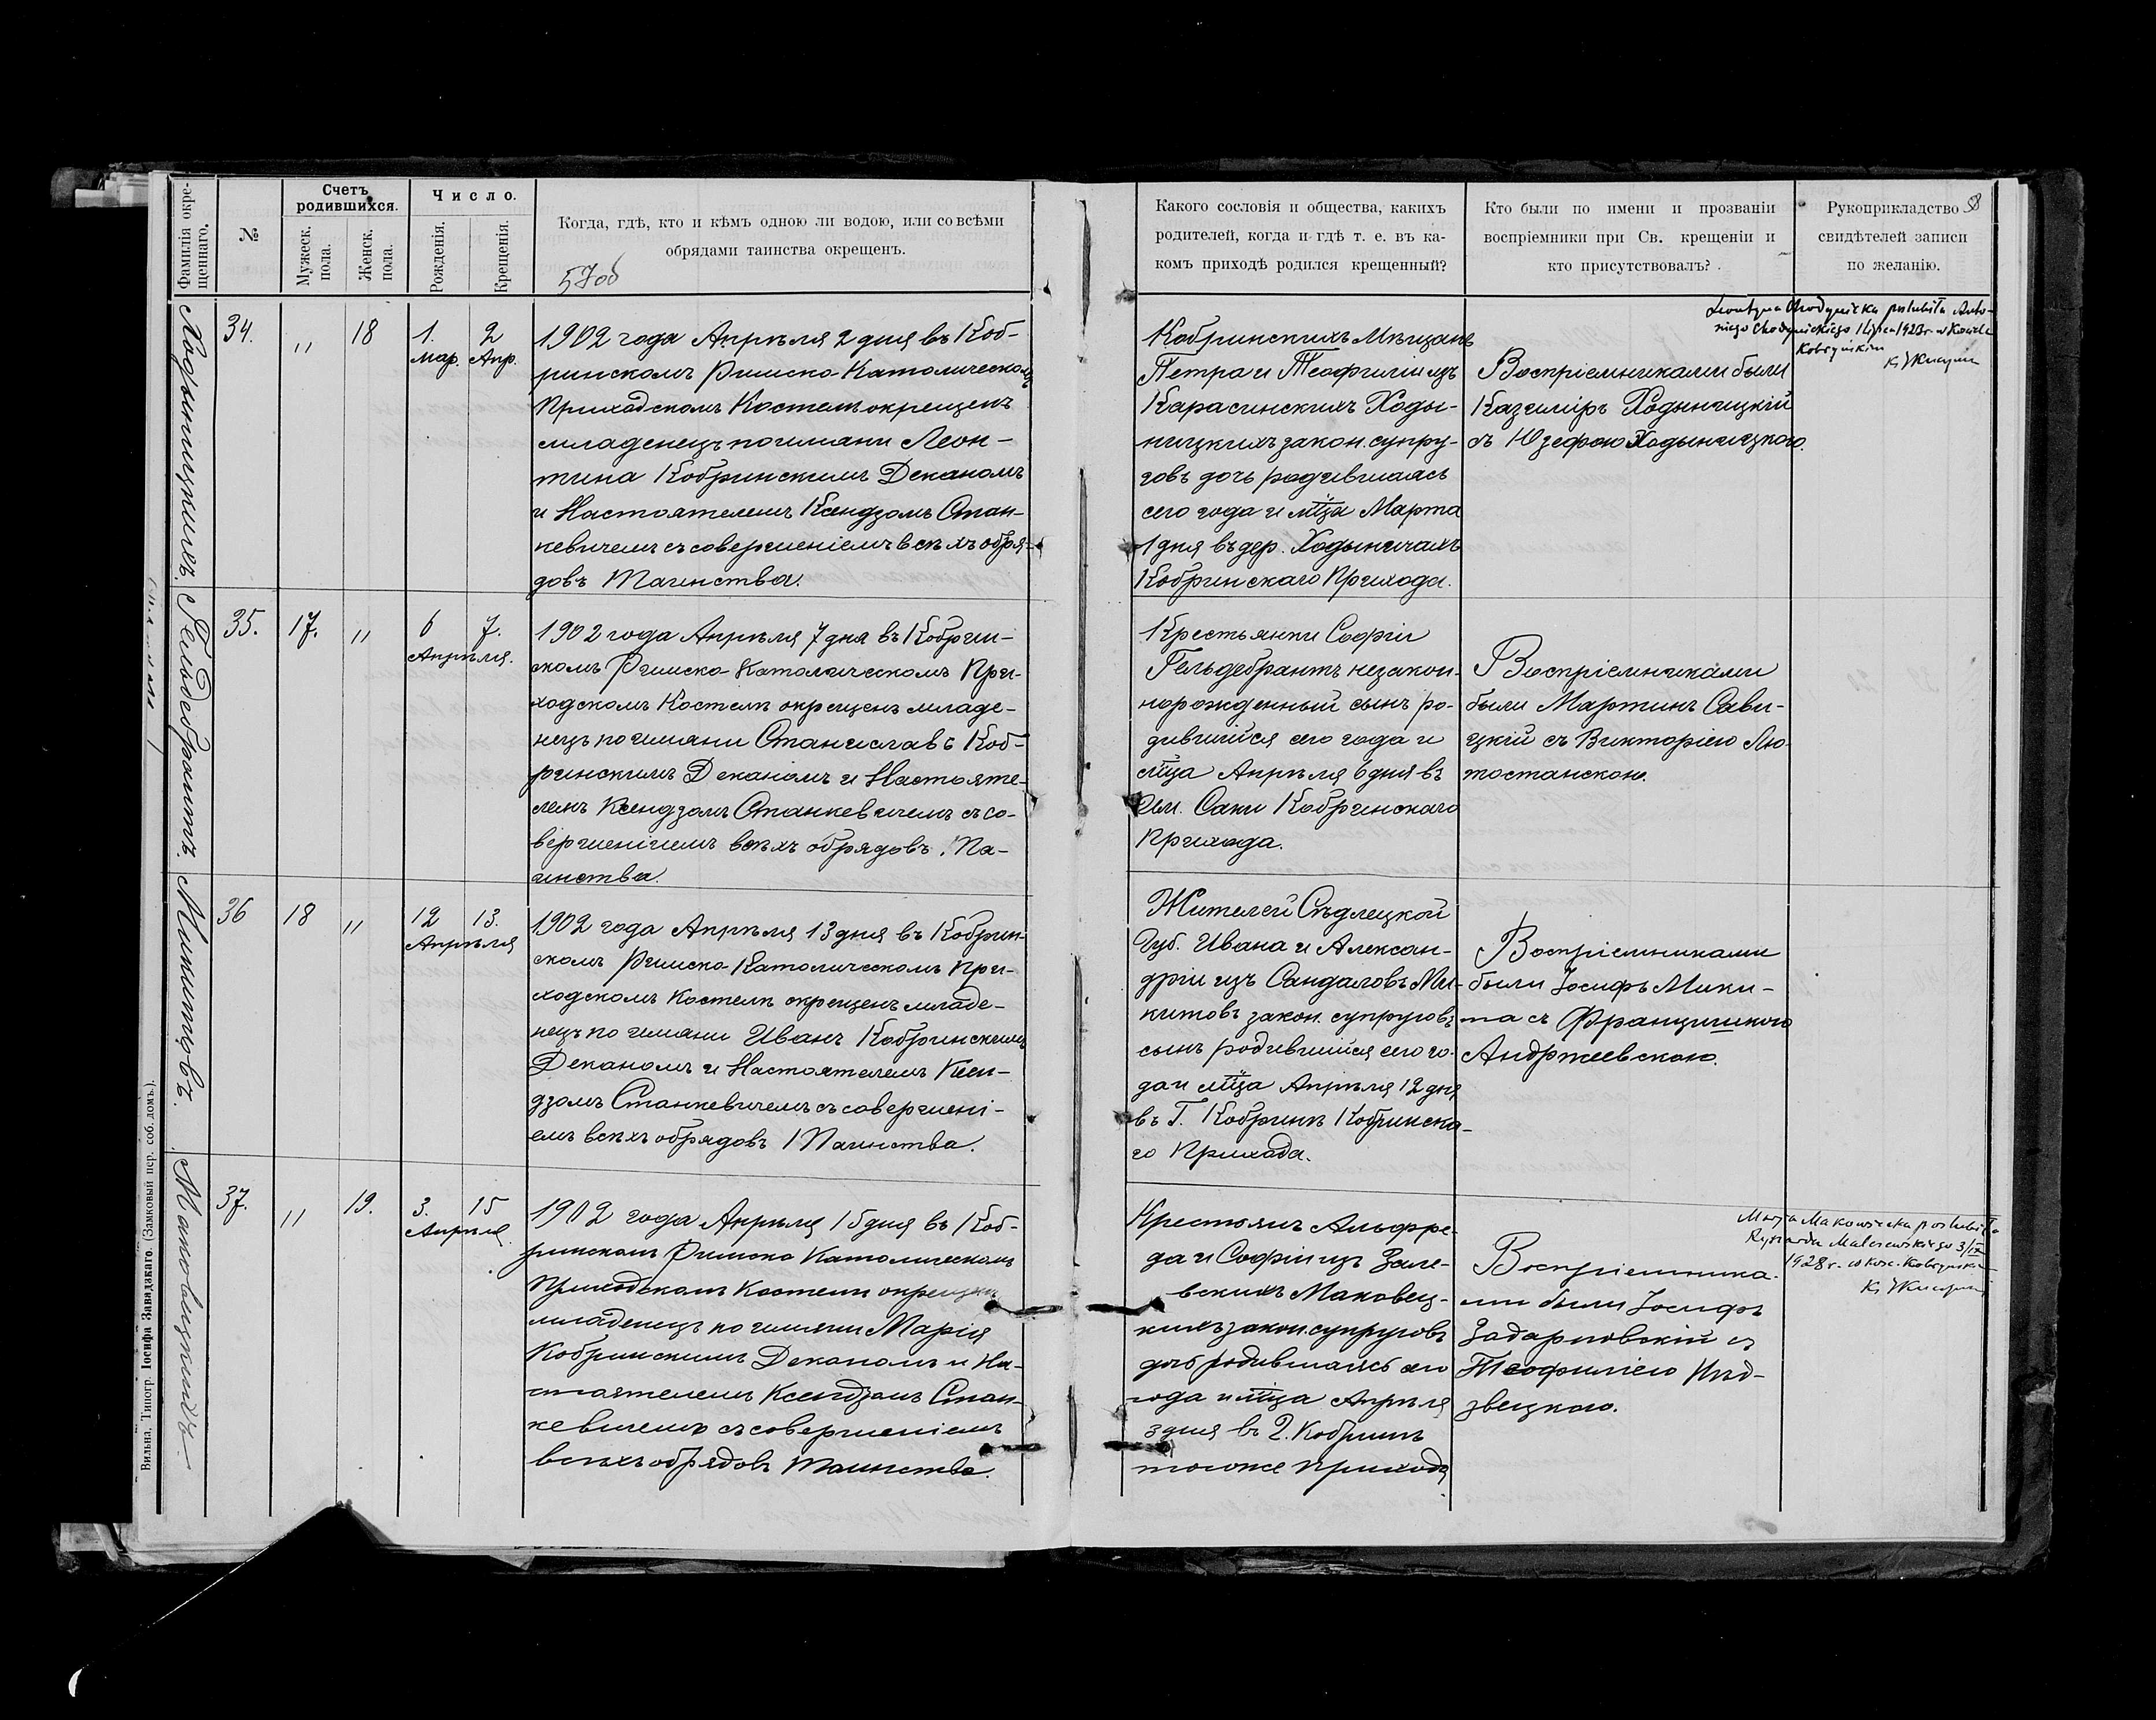 Фамилія окре-
щеннаго.
№
Счетъ
родившихся.
Мужеск.
пола.
Женск.
пола.
Число.
Рожденія.
Крещенія.
Когда, гдѣ, кто и кѣмъ одною ли водою, или со всѣми
обрядами таинства окрещенъ.
57об
Какого сословія и общества, какихъ
родителей, когда и гдѣ т. е. въ ка-
комъ приходѣ родился крещенный?
Кто были по имени и прозваніи
воспріемники при Св. крещеніи и
кто присутствовалъ?
Рукоприкладство
свидѣтелей записи
по желанію.
58
Ходыницкихъ.
34.
"
18
1.
Мар.
2
Апр.
1902 года Апрѣля 2 дня въ Коб-
ринскомъ Римско-Католическомъ
Приходскомъ Костелѣ окрещенъ
младенецъ по имени Леон-
тина Кобринскимъ Деканомъ
и Настоятелемъ Ксендзомъ Стан-
кевичемъ съ совершеніемъ всѣхъ обря-
довъ Таинства.
Кобринскихъ Мѣщанъ
Петра и Теофили изъ
Карасинскихъ Ходы-
ницкихъ закон. супру-
говъ дочь родившаяся
сего года и мца Марта
1 дня въ дер. Ходыничахъ
Кобринскаго Прихода.
Воспріемниками были
Казиміръ Ходыницкій
съ Юзефою Ходыницкою.
Leontyna Chodynicka poślubiła Anto-
niego Chodynickiego 1 lipca 1923 r. w Kościele
Kobryńskim
Гельдебрантъ.
35.
17.
"
6 7.
Апрѣля.
1902 года Апрѣля 7 дня въ Кобрин-
скомъ Римско-Католическомъ При-
ходскомъ Костелѣ окрещенъ младе-
нецъ по имени Станиславъ Коб-
ринскимъ Деканомъ и Настояте-
лемъ Ксендзомъ Станкевичемъ съ со-
вершеніемъ всѣхъ обрядовъ Та-
инства.
Крестьянки Софіи
Гельдебрантъ незакон-
норожденный сынъ ро-
дившійся сего года и
мца Апрѣля 6 дня въ
им. Саки Кобринскаго
Прихода.
Воспріемниками
были Мартинъ Сави-
цкій съ Викторіею Лю-
тостанскою.
Микитовъ.
36
18
"
12 13.
Апрѣля
1902 года Апрѣля 13 дня въ Кобрин-
скомъ Римско-Католическомъ При-
ходскомъ Костелѣ окрещенъ младе-
нецъ по имени Иванъ Кобринскимъ
Деканомъ и Настоятелемъ Ксен-
дзомъ Станкевичемъ съ совершені-
емъ всѣхъ обрядовъ Таинства.
Жителей Сѣдлецкой
Губ. Ивана и Алексан-
дріи изъ Сандаловъ Ми-
китовъ закон. супруговъ
сынъ родившійся сего го-
да и мца Апрѣля 12 дня
въ Г. Кобринѣ Кобринска-
го Прихода.
Воспріемниками
были Іосифъ Мики-
та съ Францишкою
Андржеевскою.
Маковецкихъ.
37.
"
19.
3. 15
Апрѣля.
1902 года Апрѣля 15 дня въ Коб-
ринскомъ Римско Католическомъ
Приходскомъ Костелѣ окрещенъ
младенецъ по имени Марія
Кобринскимъ Деканомъ и На-
стоятелемъ Ксендзомъ Стан-
кевичемъ съ совершеніемъ
всѣхъ обрядовъ Таинства.
Крестьянъ Альфре-
да и Софіи изъ Зале-
вскихъ Маковец-
кихъ закон. супруговъ
дочь родившаяся сего
года и мца Апрѣля
3 дня въ г. Кобринѣ
тогоже Прихода
Воспріемника-
ми были Іосифъ
Задарновскій съ
Теофиліею Нѣд-
звецкою.
Marja Makowiecka poślubiła
Ryszarda Malewskiego 3/IX
1928 r. w kośc. Kobryńskim
Вильна, Типогр. Іосифа Завадзкаго. (Замковый пер. соб. домъ.).